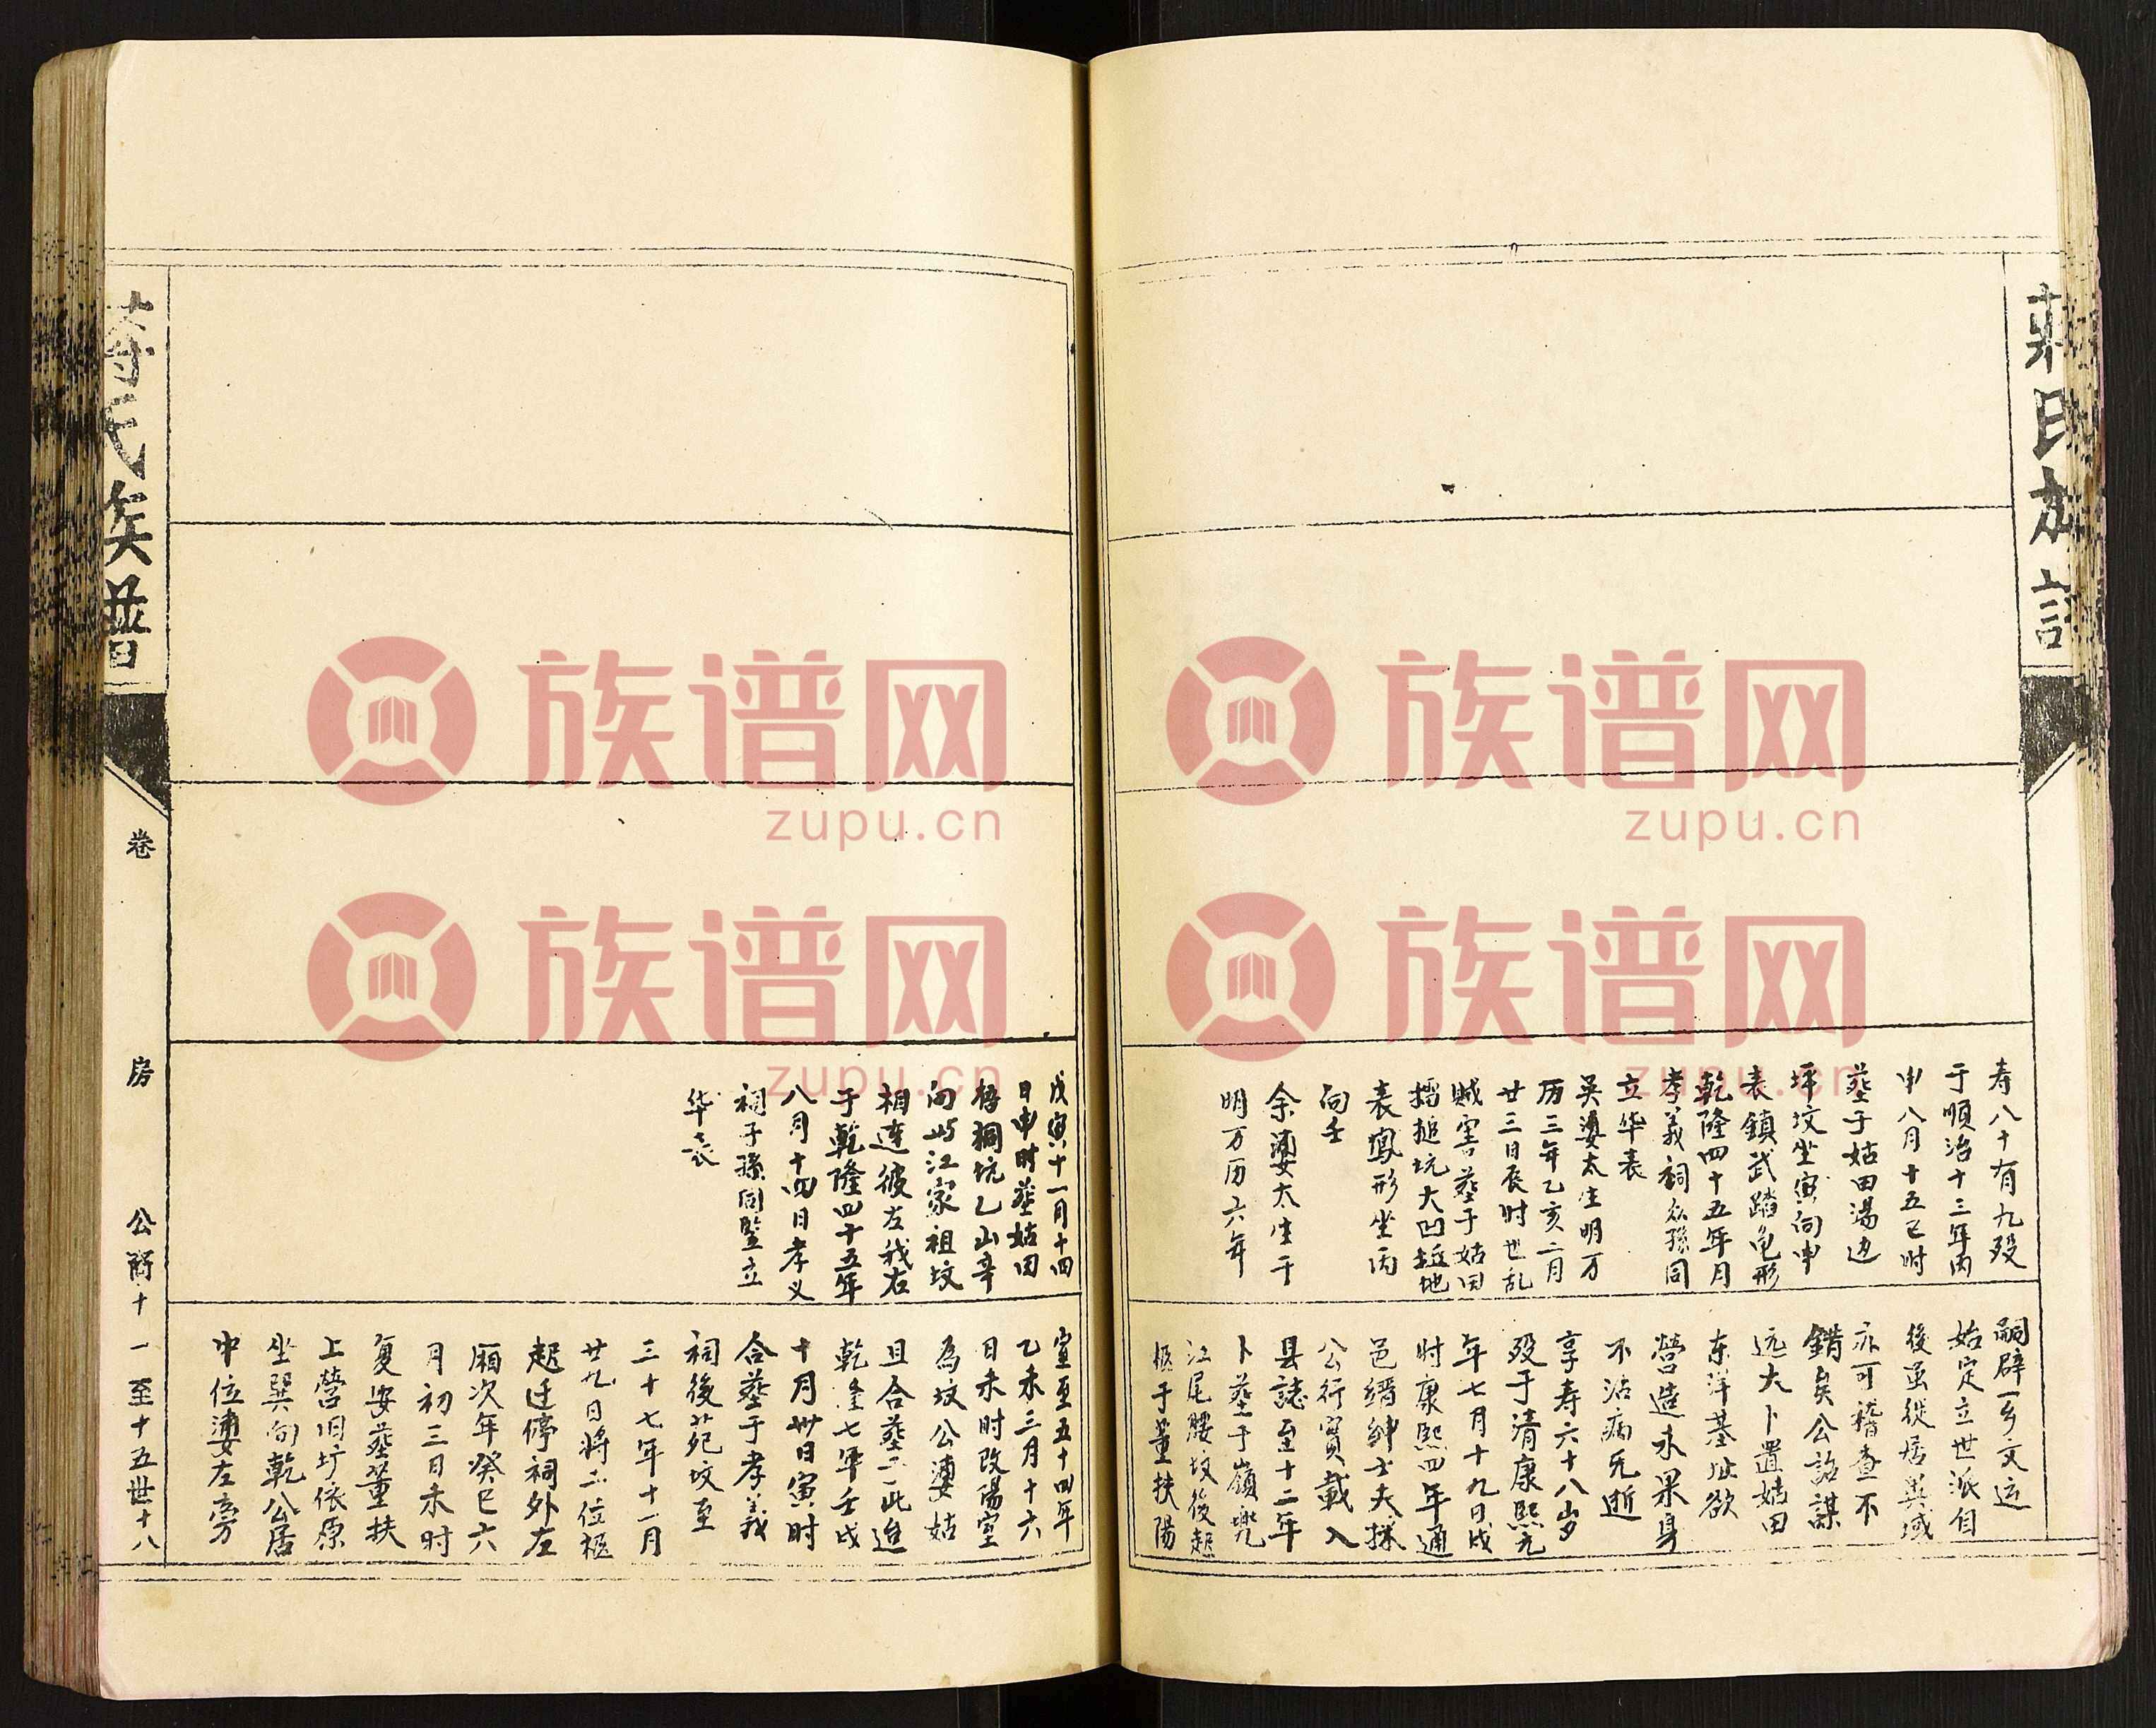 寿八十有九殁
于順治十三年丙
申八月十五巳时
葬于姑田湯边
坪坟坐寅向申
表鎮武踏龟形
乾隆四十五年月
孝義祠众孫同
立华表
吴婆太生明万
历三年乙亥二月
廿三日辰时世乱
贼害葬于姑田
擂搥坑大凹
表鳳形坐丙
向壬
余婆太生于
明万历六年
嗣辟一乡文运
始定立世派自
後虽従居異域
亦可稽查不
錯矣公詒謀
远大卜置姑田
东洋基址欲
營造未果身
不沾病无逝
享寿六十八岁
殁于清康熙元
年七月十九日戌
时康熙四年通
邑縉紳士夫採
公行實載入
县誌至十二年
卜葬于嶺兜
江尾腰坟後起
柩于董扶陽
戊寅十一月十四
日申时葬姑田
梧桐坑乙山辛
向屿江家祖坟
相連彼左我右
于乾隆四十五年
八月十四日孝义
祠子孫同竪立
华表
室至五十四年
乙未三月十六
日未时改陽室
為坟公婆姑
且合葬于此迨
乾隆七年壬戌
十月卅日寅时
合葬于孝義
祠後苑坟至
三十七年十一月
廿九日將二位柩
起迁停祠外左
厢次年癸巳六
月初三日未时
复安葬董扶
上營旧圹依原
坐巽向乾公居
中位婆左旁
蒋氏族譜
卷
房
公裔十一至十五世十八
族谱网
zupu.cn
族谱网
zupu.cn
族谱网
zupu.cn
族谱网
zupu.cn